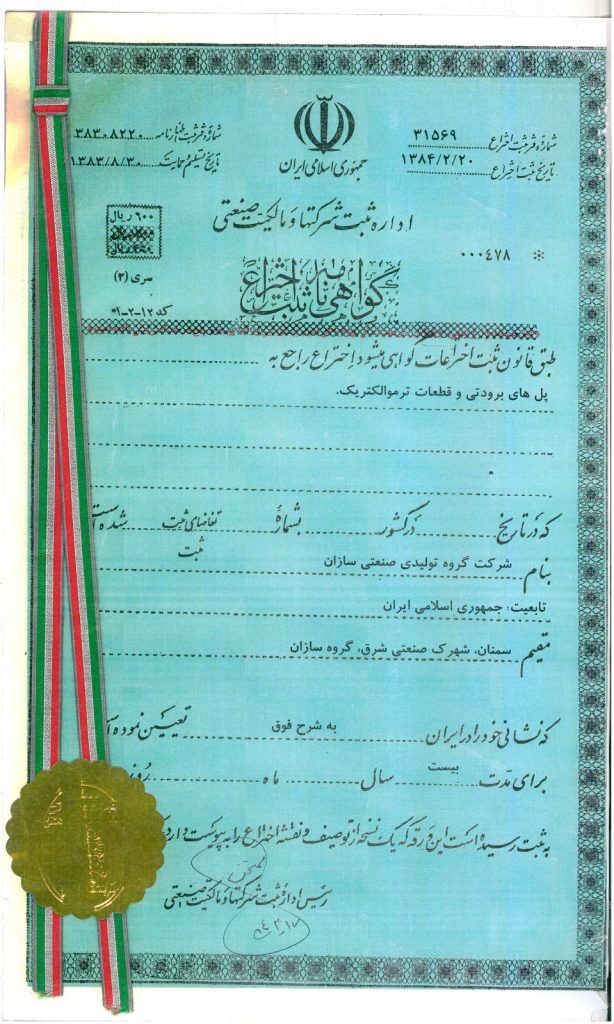 شماره دفتر ثبت اختراع ۳۱۵۶۹
تاریخ ثبت اختراع ۱۳۸۴/۲/۲۰
شماره دفتر ثبت اظهارنامه ۳۸۳۰۸۲۲۰
تاریخ تسلیم و حمایت ۱۳۸۳/۸/۳۰
جمهوری اسلامی ایران
اداره ثبت شرکتها و مالکیت صنعتی
۶۰۰ ریال
* ۰۰۰۴۷۸
سری (۲)
گواهی نامه ثبت اختراع
کد ۱۲-۲-۴۹
طبق قانون ثبت اختراعات گواهی میشود اختراع راجع به
پل های برودتی و قطعات ترموالکتریک.
که در تاریخ در کشور بشماره تقاضای ثبت شده است
ثبت
بنام شرکت گروه تولیدی صنعتی سازان
تابعیت: جمهوری اسلامی ایران
مقیم سمنان، شهرک صنعتی شرق، گروه سازان
که نشانی خود را در ایران به شرح فوق تعیین نموده ا
برای مدت بیست سال ماه روز
به ثبت رسیده است این ورقه که یک نسخه از توصیف و نقشه اختراع را به پیوست دارد
رئیس اداره ثبت شرکتها و مالکیت صنعتی